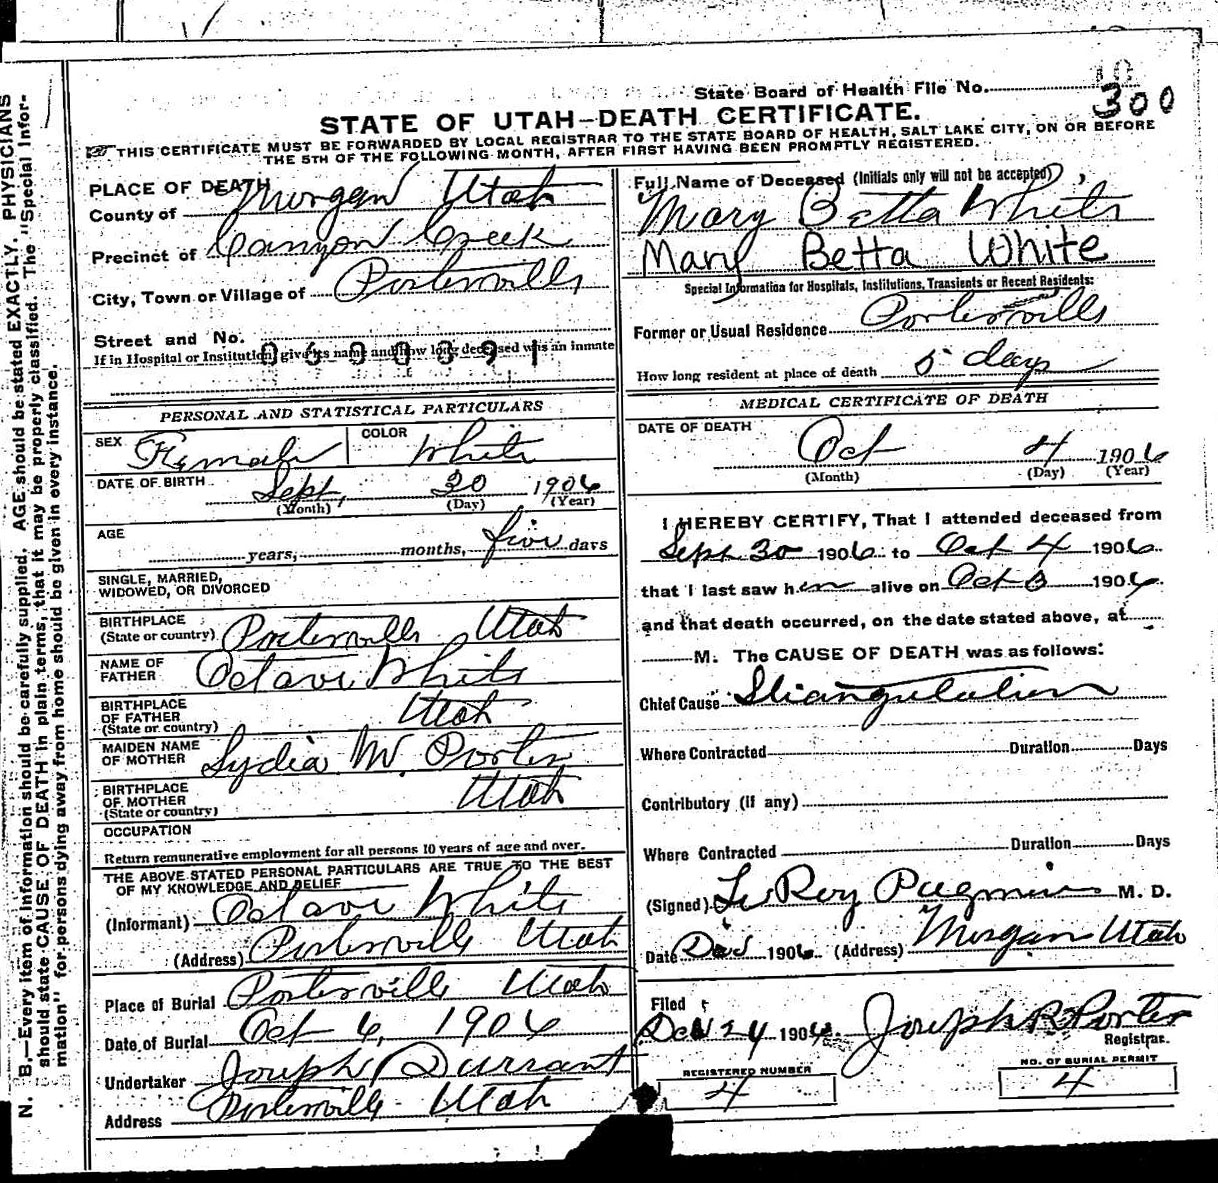 State Board of Health File No.
300
STATE OF UTAH—DEATH CERTIFICATE.
THIS CERTIFICATE MUST BE FORWARDED BY LOCAL REGISTRAR TO THE STATE BOARD OF HEALTH, SALT LAKE CITY, ON OR BEFORE
THE 5TH OF THE FOLLOWING MONTH, AFTER FIRST HAVING BEEN PROMPTLY REGISTERED.
PLACE OF DEATH
County of Morgan Utah
Precinct of Canyon Creek
City, Town or Village of Porterville
Street and No.
If in Hospital or Institution, give its name and how long deceased was an inmate
0600391
PERSONAL AND STATISTICAL PARTICULARS
SEX Female COLOR White
DATE OF BIRTH Sept, 30 1906
(Month) (Day) (Year)
AGE years, months, five days
SINGLE, MARRIED,
WIDOWED, OR DIVORCED
BIRTHPLACE
(State or country) Porterville, Utah
NAME OF
FATHER Octave White
BIRTHPLACE
OF FATHER
(State or country) Utah
MAIDEN NAME
OF MOTHER Lydia M. Porter
BIRTHPLACE
OF MOTHER
(State or country) Utah
OCCUPATION
Return remunerative employment for all persons 10 years of age and over.
THE ABOVE STATED PERSONAL PARTICULARS ARE TRUE TO THE BEST
OF MY KNOWLEDGE AND BELIEF
(Informant) Octave White
(Address) Porterville Utah
Place of Burial Porterville Utah
Date of Burial Oct 6, 1906
Undertaker Joseph Durrant
Address Porterville Utah
Full Name of Deceased (Initials only will not be accepted)
Mary Betta White
Mary Betta White
Special Information for Hospitals, Institutions, Transients or Recent Residents:
Former or Usual Residence Porterville
How long resident at place of death 5 days
MEDICAL CERTIFICATE OF DEATH
DATE OF DEATH
Oct 4 1906
(Month) (Day) (Year)
I HEREBY CERTIFY, That I attended deceased from
Sept 30 1906 to Oct 4 1906
that I last saw her alive on Oct 3 1906
and that death occurred, on the date stated above, at
M. The CAUSE OF DEATH was as follows:
Chief Cause Strangulation
Where Contracted Duration Days
Contributory (if any)
Where Contracted Duration Days
(Signed) LeRoy Pugmire M. D.
Date 1906 (Address) Morgan Utah
Filed
24 1906. Joseph R Porter
Registrar.
REGISTERED NUMBER
4
NO. OF BURIAL PERMIT
4
N. B.—Every item of information should be carefully supplied. AGE should be stated EXACTLY. PHYSICIANS
should state CAUSE OF DEATH in plain terms, that it may be properly classified. The "Special Infor-
mation" for persons dying away from home should be given in every instance.